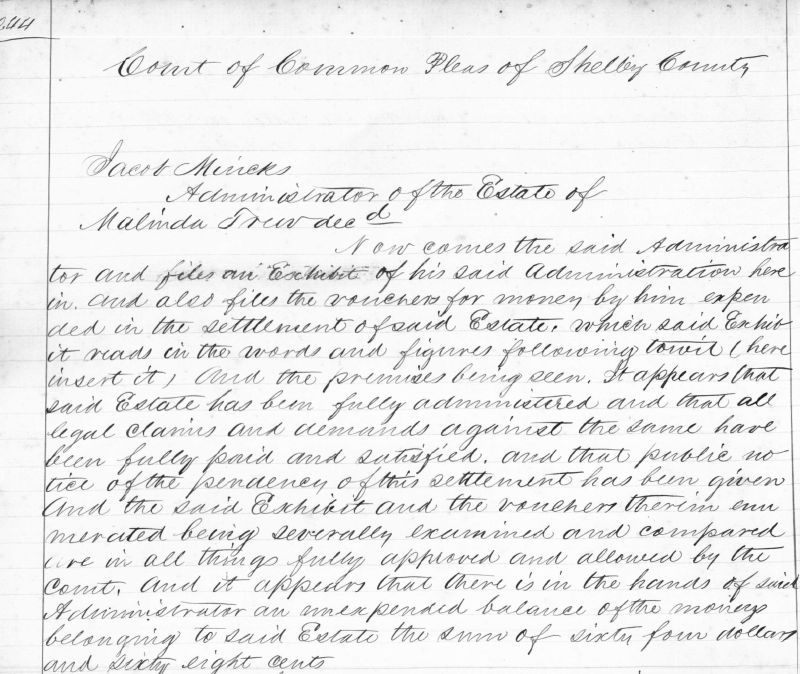 244
Court of Common Pleas of Shelby County
Jacob Mincks
Administrator of the Estate of
Malinda Trew decd
Now comes the said Administra
tor and files an Exhibit of his said Administration here
in. And also files the vouchers for money by him expen
ded in the settlement of said Estate. which said Exhib
it reads in the words and figures following towit (here
insert it) And the premises being seen. It appears that
said Estate has been fully administered and that all
legal claims and demands against the same have
been fully paid and satisfied. and that public no
tice of the pendency of this settlement has been given
And the said Exhibit and the vouchers therein enu
merated being severally examined and compared
are in all things fully approved and allowed by the
Court. And it appears that there is in the hands of said
Administrator an unexpended balance of the moneys
belonging to said Estate the sum of sixty four dollars
and sixty eight cents